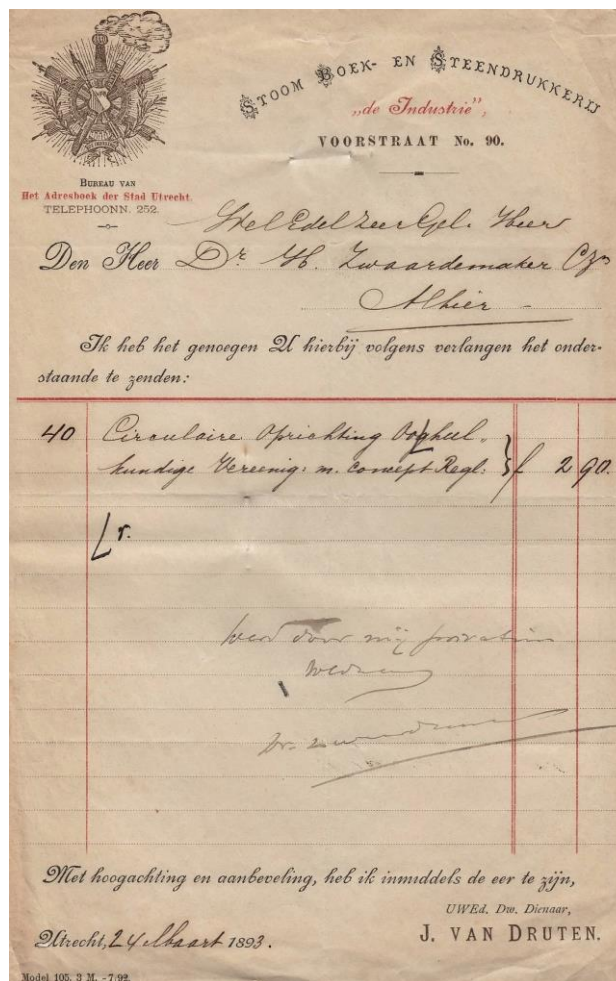 STOOM BOEK- EN STEENDRUKKERIJ
„de Industrie",
VOORSTRAAT No. 90.
BUREAU VAN
Het Adresboek der Stad Utrecht.
TELEPHOONN. 252.
WelEdelZeerGel. Heer
Den Heer Dr H. Zwaardemaker Cz
Alhier -
Ik heb het genoegen U hierbij volgens verlangen het onder-
staande te zenden:
40 Circulaire Oprichting Oogheel„
kundige Vereenig: m. concept Regl: } f 2 90.
⌊r.
werd door mij
Dr.
Met hoogachting en aanbeveling, heb ik inmiddels de eer te zijn,
UWEd. Dw. Dienaar,
Utrecht, 24 Maart 1893.
J. VAN DRUTEN.
Model 105. 3 M. - 7.92.